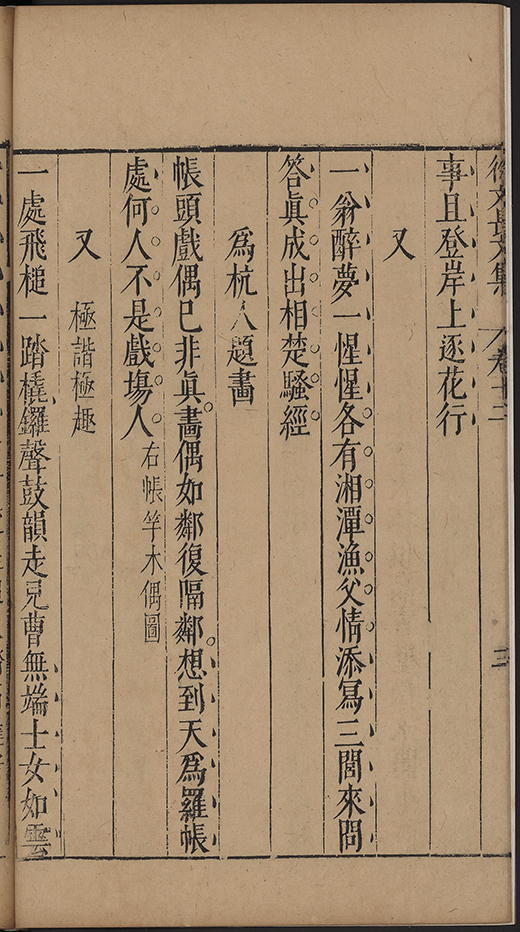 徐文長文集 卷十二 三
事且登岸上逐花行
又
一翁醉夢一惺惺各有湘潭漁父情添冩三閭來問
答眞成出相楚騷經
爲杭人題畫
帳頭戲偶已非眞畵偶如鄰復隔鄰想到天爲羅帳
處何人不是戲塲人右帳竿木偶圖
又 極諧極趣
一處飛槌一踏橇鑼聲鼓韻走兒曹無端士女如雲